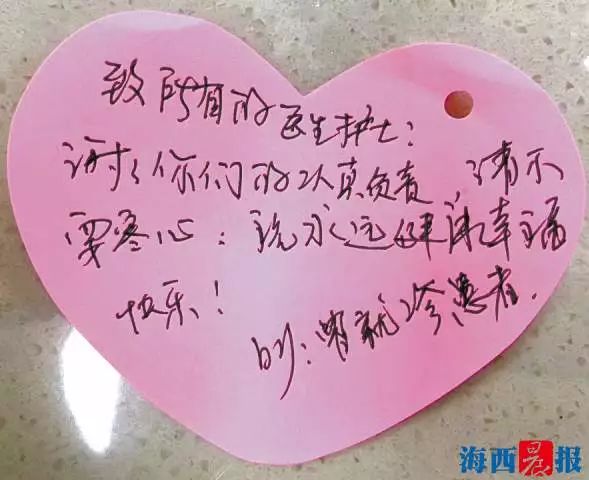 致所有的医生护士：
谢谢你们的认真负责，请不
要寒心：祝永远健康幸福
快乐！
时：曾就诊患者.
海西晨报